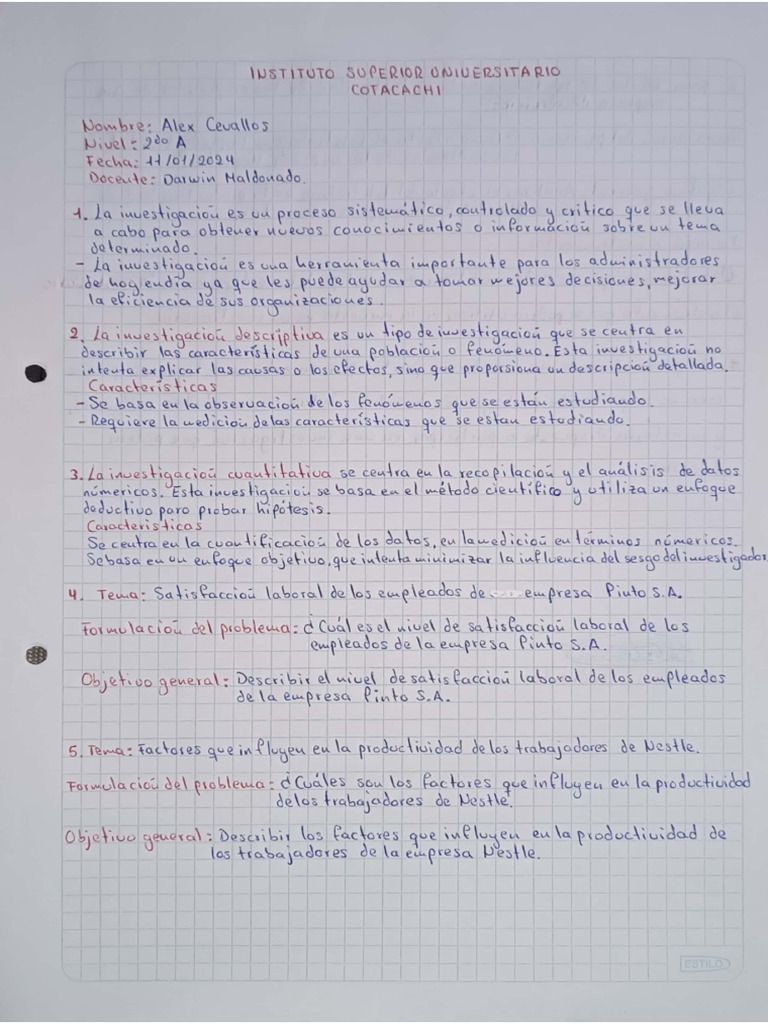 INSTITUTO SUPERIOR UNIVERSITARIO
COTACACHI
Nombre: Alex Cevallos
Nivel: 2do A
Fecha: 11/01/2024
Docente: Darwin Maldonado.
1. La investigación es un proceso sistemático, controlado y critico que se lleva
a cabo para obtener nuevos conocimientos o información sobre un tema
determinado.
- La investigación es una herramienta importante para los administradores
de hoy en dia ya que les puede ayudar a tomar mejores decisiones, mejorar
la eficiencia de sus organizaciones.
2. La investigación descriptiva es un tipo de investigación que se centra en
describir las características de una población o fenómeno. Esta investigación no
intenta explicar las causas o los efectos, sino que proporsiona un descripción detallada.
Características
- Se basa en la observación de los fenómenos que se están estudiando.
- Requiere la medición de las características que se estan estudiando.
3. La investigación cuantitativa se centra en la recopilación y el análisis de datos
númericos. Esta investigación se basa en el método científico y utiliza un enfoque
deductivo para probar hipótesis.
Caracteristicas
Se centra en la cuantificación de los datos, en la medición en términos númericos.
Se basa en un enfoque objetivo, que intenta minimizar la influencia del sesgo del investigador
4. Tema: Satisfacción laboral de los empleados de empresa Pinto S.A.
Formulación del problema: ¿Cuál es el nivel de satisfacción laboral de los
empleados de la empresa Pinto S.A.
Objetivo general: Describir el nivel de satisfacción laboral de los empleados
de la empresa Pinto S.A.
5. Tema: Factores que influyen en la productividad de los trabajadores de Nestle.
Formulación del problema: ¿Cuáles son los factores que influyen en la productividad
de los trabajadores de Nestle.
Objetivo general: Describir los factores que influyen en la productividad de
los trabajadores de la empresa Nestle.
ESTILO